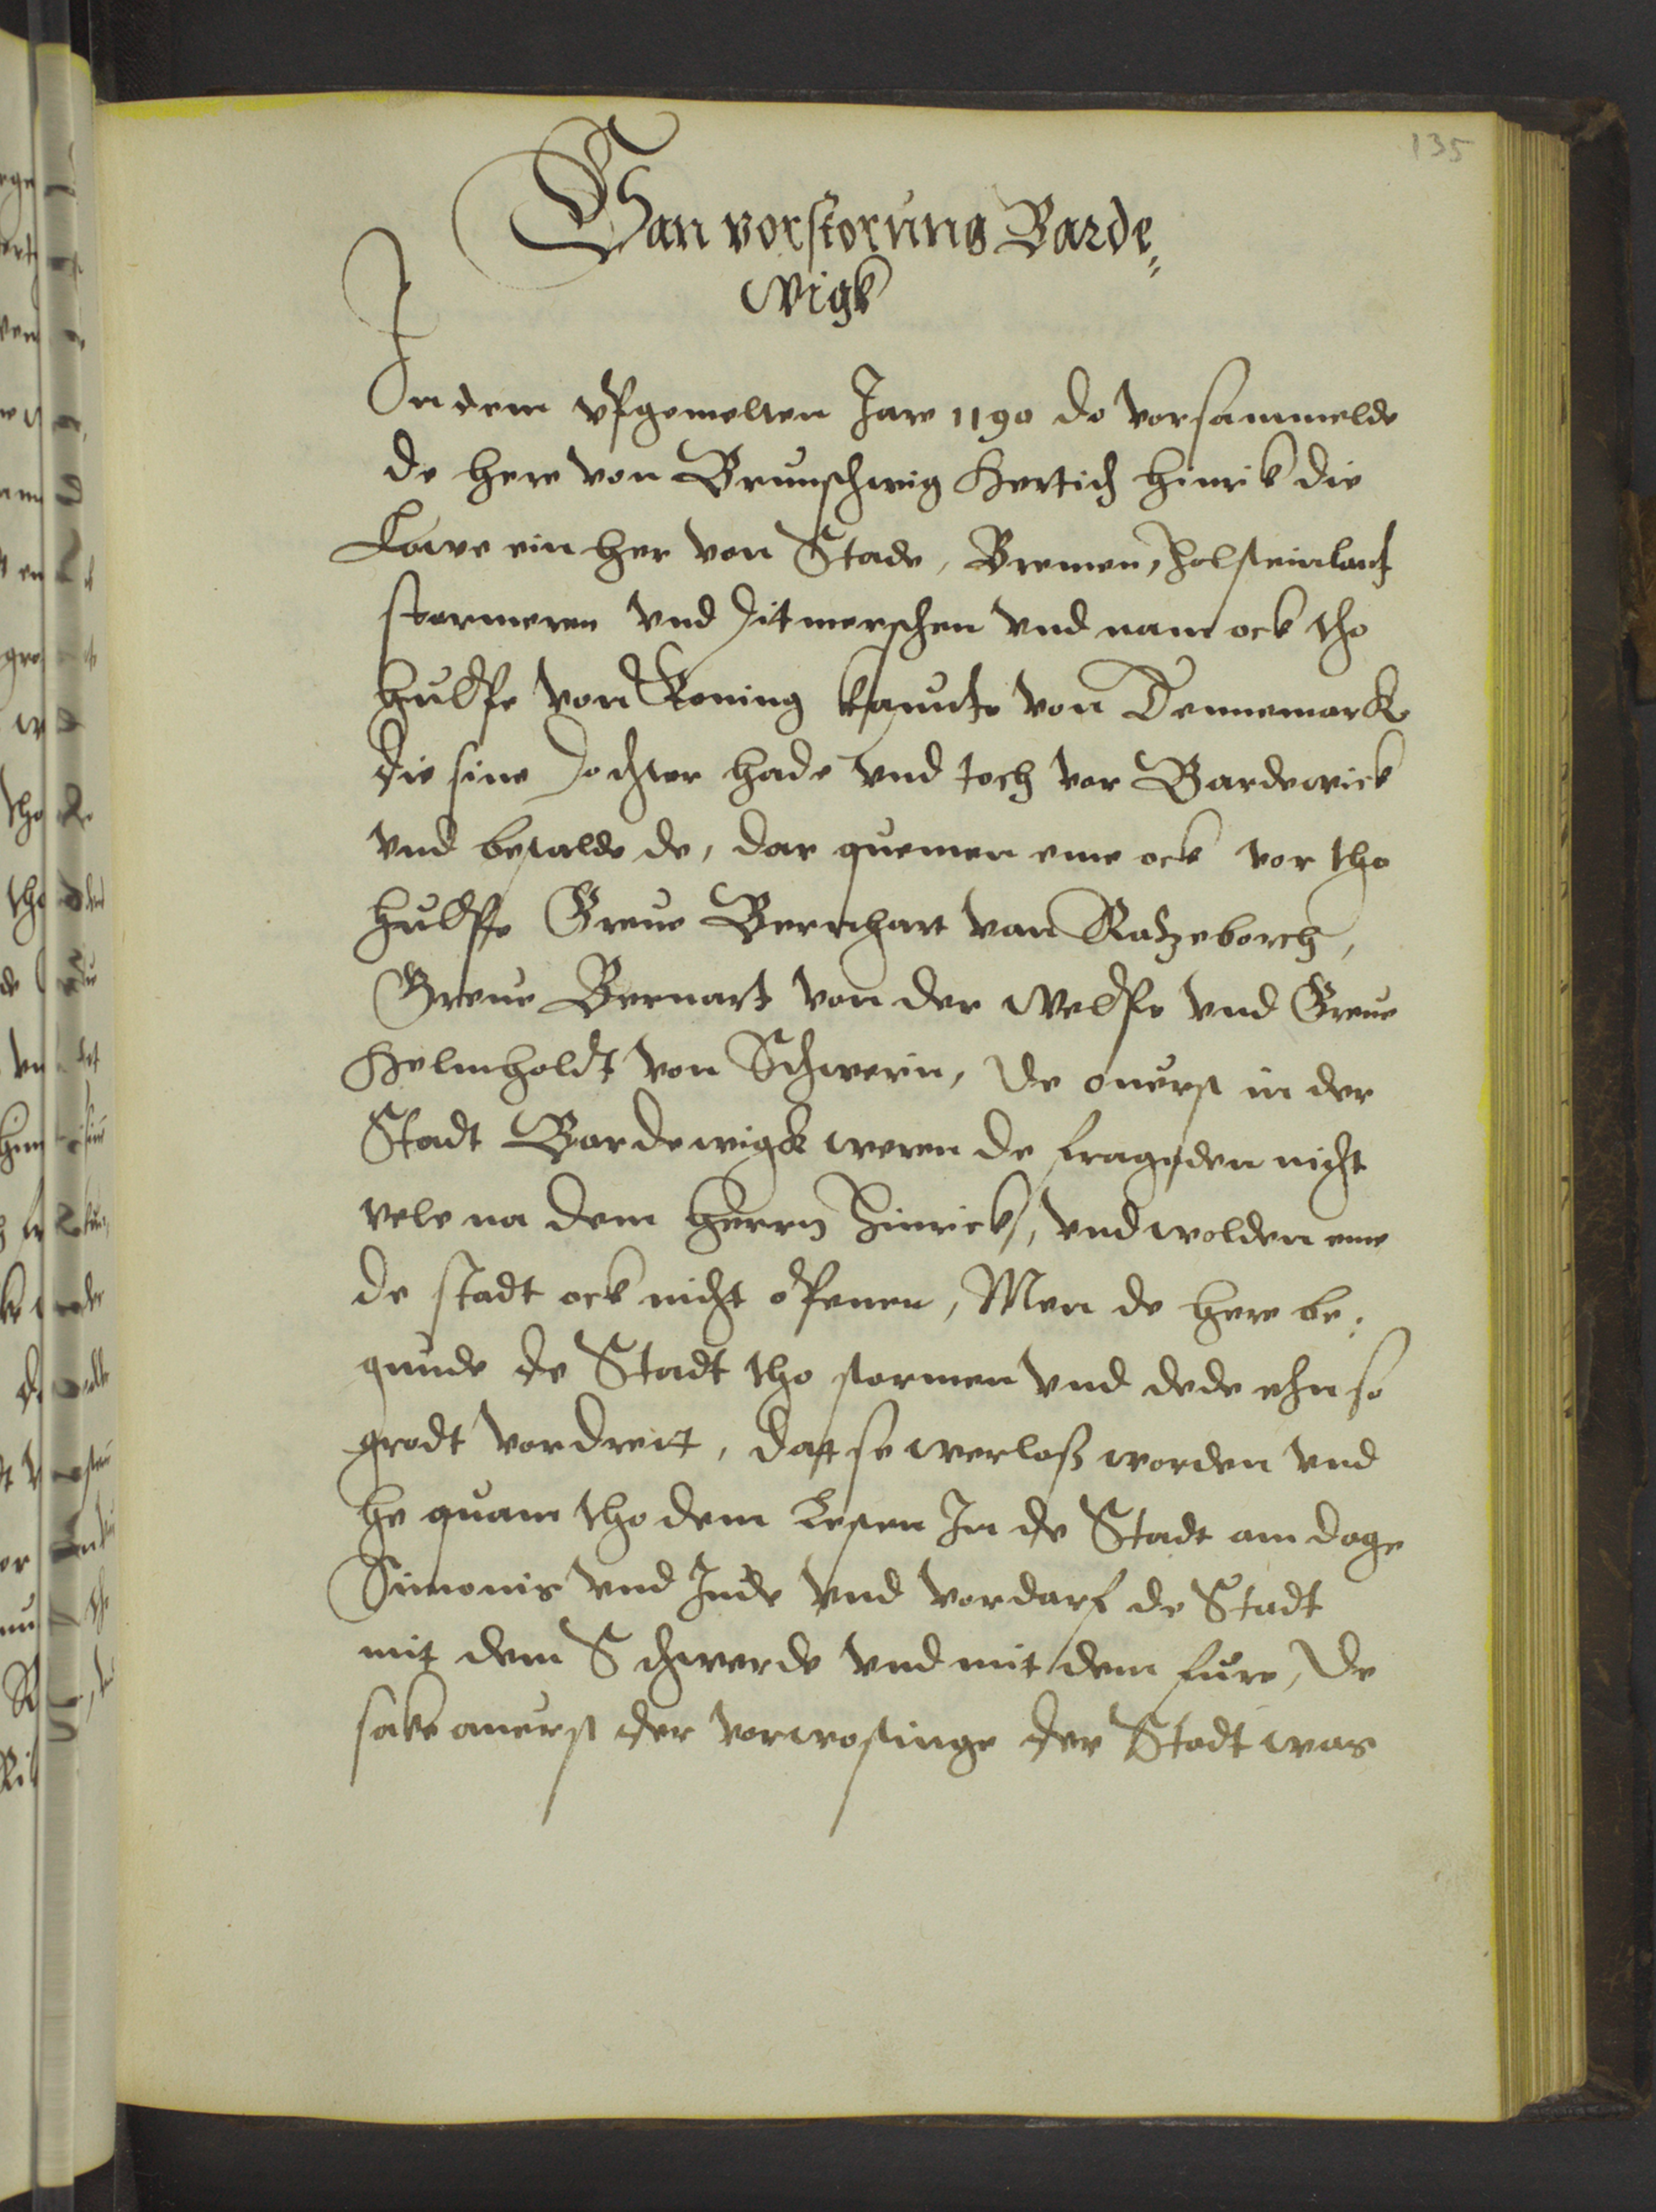 135
Van vorstorung Barde⸗
wigk
In dem vpgemelten Jare 1190 do vorsammelde
de here von Brunschwig Hertich hinrik die
Lowe ein her von Stade, Bremen, Holsteinlant
stormeren vnd Ditmerschen vnd nam ock tho
hulpe von Koning kanute von Dennemark
die sine Dochter hade vnd toch vor Bardewick
vnd bestalde de, dar quemen eme ock vor tho
hulpe Greue Bernhart van Ratzeborch,
Greue Bernart von der Welpe vnd Greue
Helmholdt von Schwerin, De ouerst in der
Stadt Bardewigk weren de frageden nicht
vele na dem herrn Hinrick, vnd wolden eme
de stadt ock nicht openen, Men de here be⸗
gunde de Stadt tho stormen vnd dede ehn so
grodt vordreit, dat se werloß worden vnd
he quam tho dem Lesten In de Stadt am dage
Simonis vnd Jude vnd vordarf de Stadt
mit dem Schwerde vnd mit dem fure, De
sake auerst der vorwostinge der Stadt was